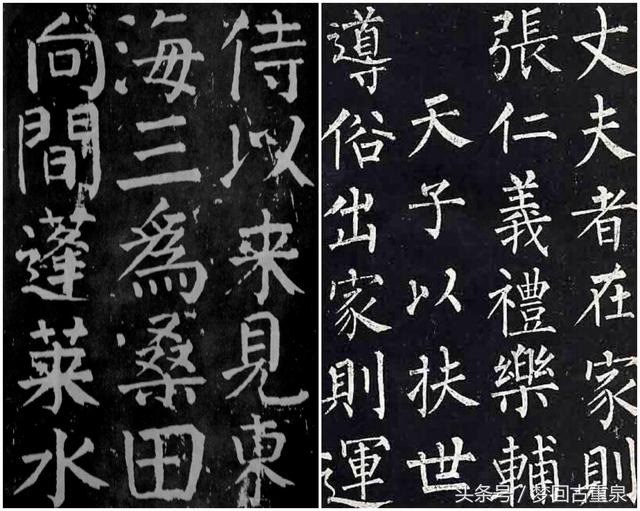 侍以来見東
海三為桑田
向間蓬莱水
丈夫者在家則
張仁義禮樂輔
天子以扶世
導俗出家則運
头条号 / 梦回古重泉